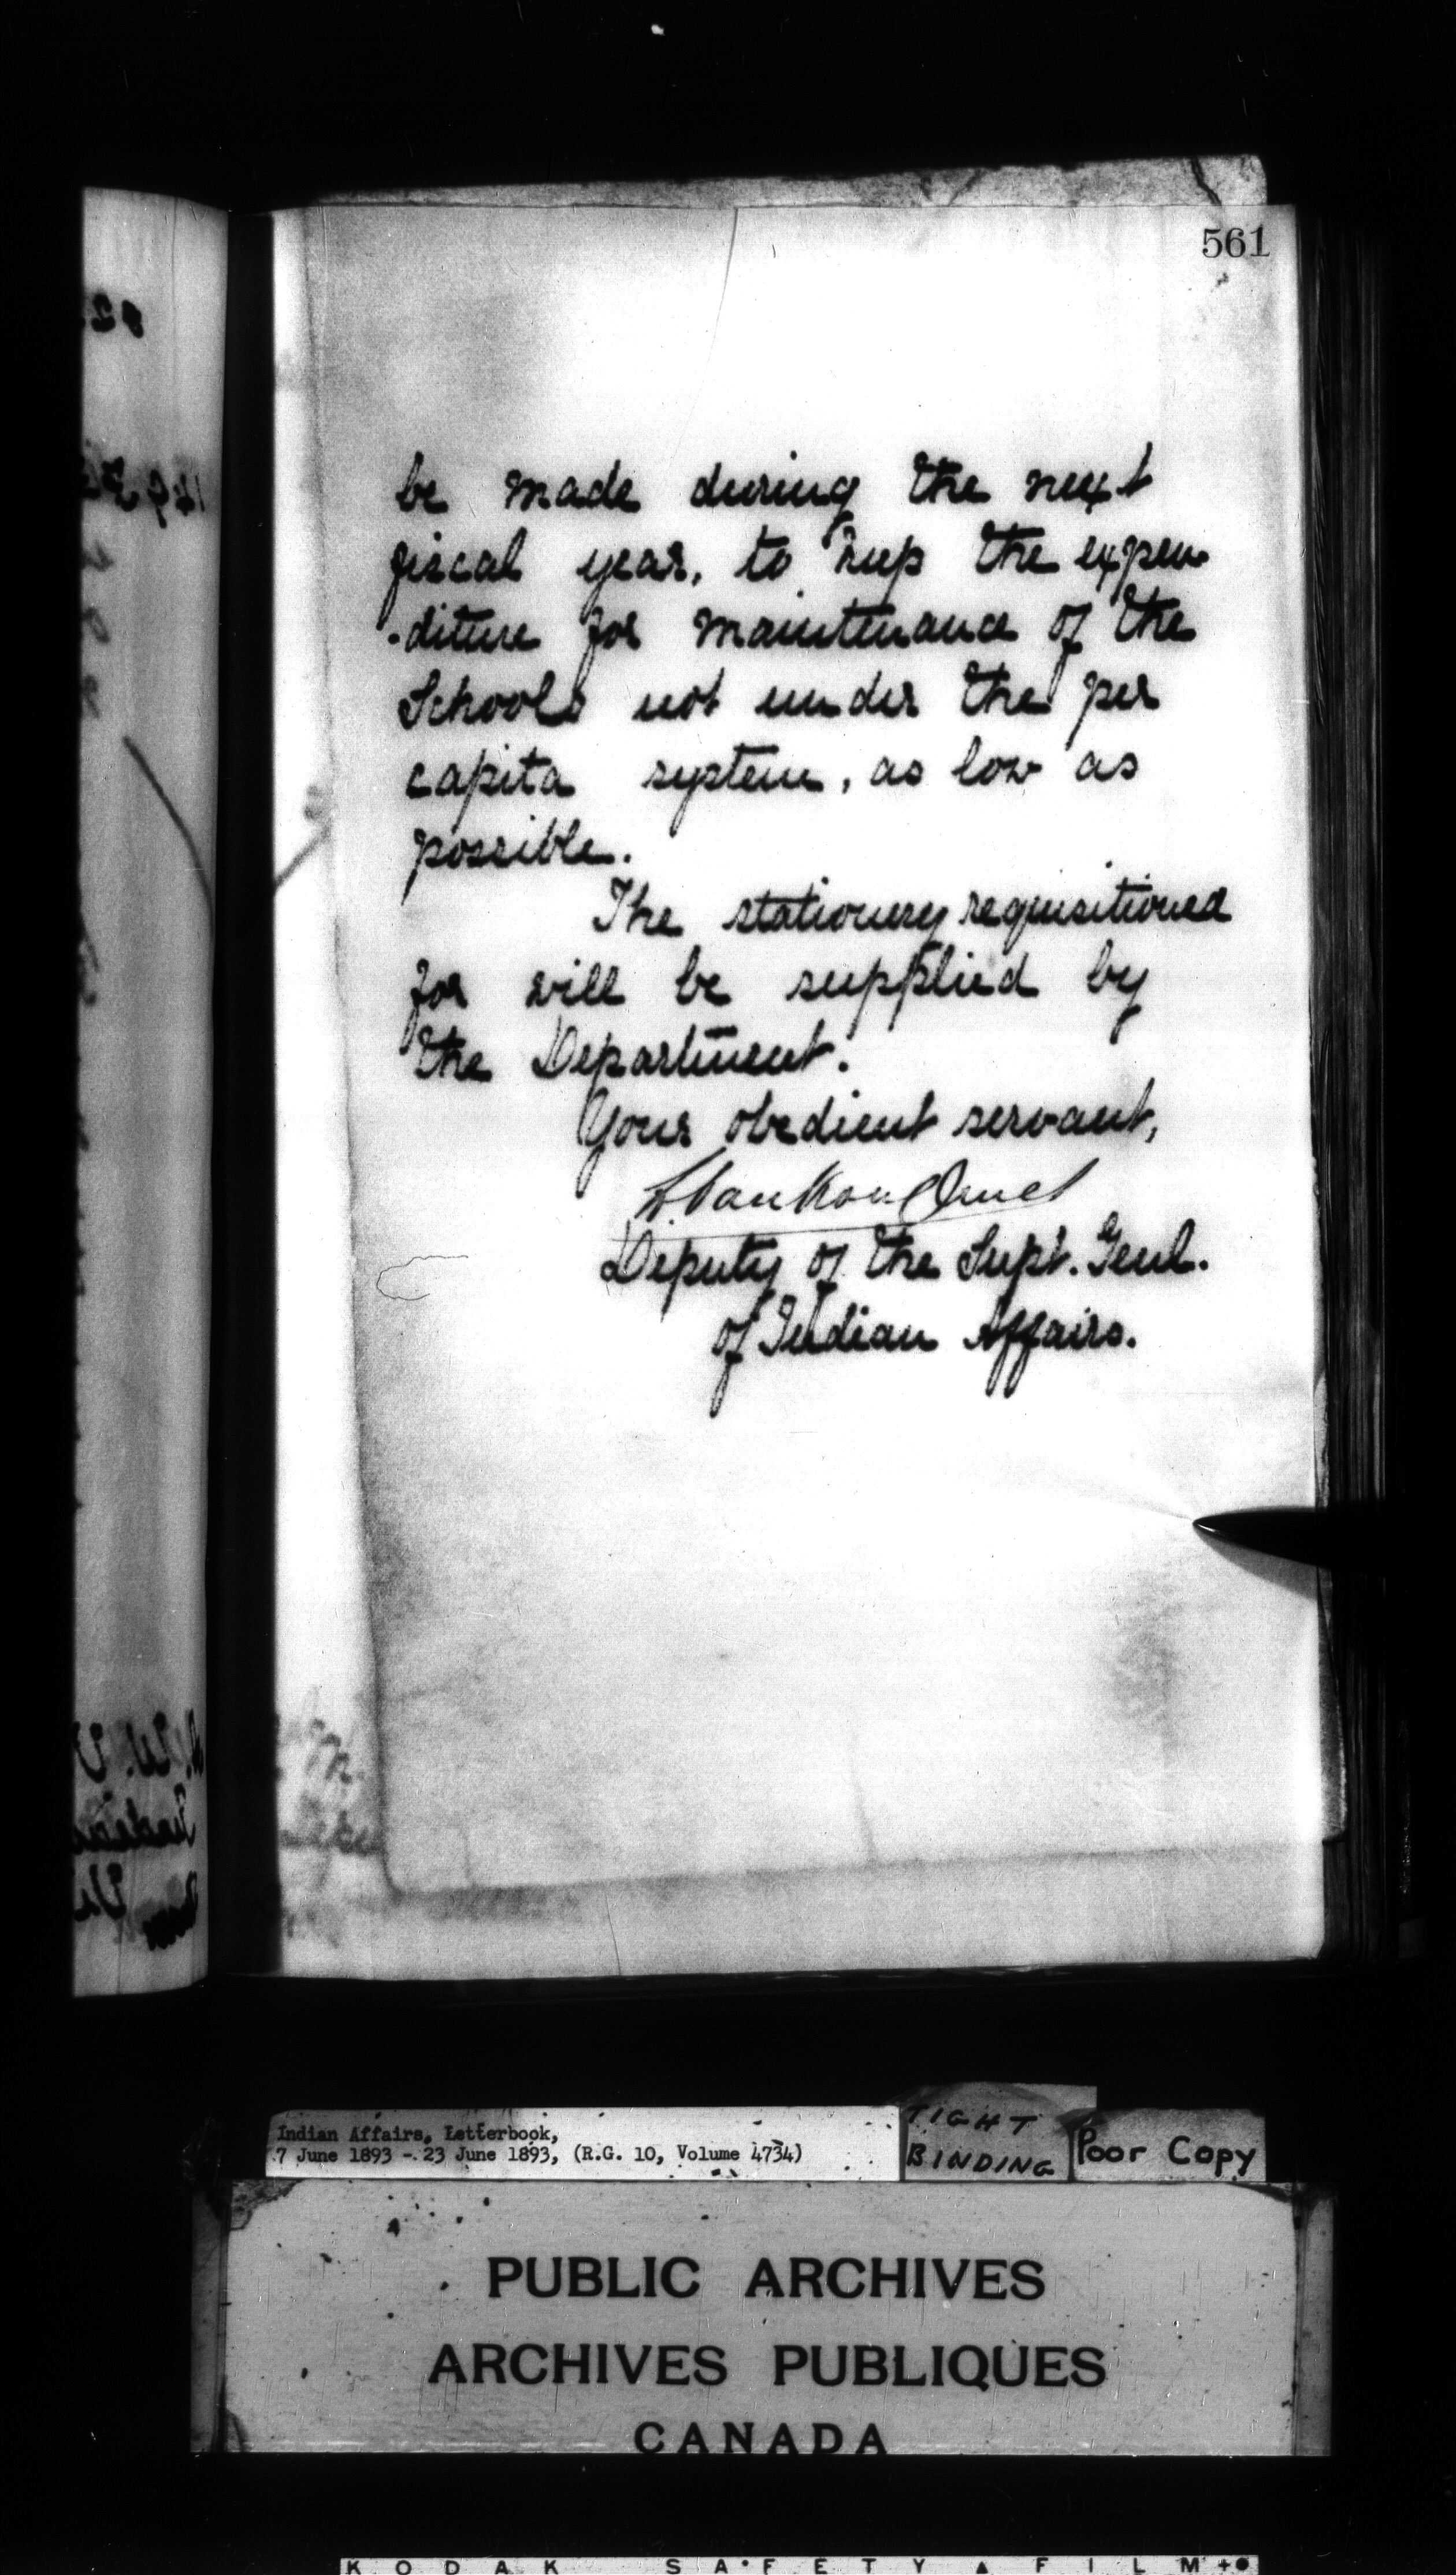 561
be made during the next
fiscal year, to keep the expen
-diture for maintenance of the
Schools not under the per
capita system, as low as
possible.
The stationery requisitioned
for will be supplied by
the Department.
Your obedient servant,
L. Vankoughnet
Deputy of the Supt. Genl.
of Indian Affairs.
Indian Affairs, Letterbook,
7 June 1893 - 23 June 1893, (R.G. 10, Volume 4734)
TIGHT
BINDING
Poor Copy
PUBLIC ARCHIVES
ARCHIVES PUBLIQUES
CANADA
KODAK SAFETY FILM